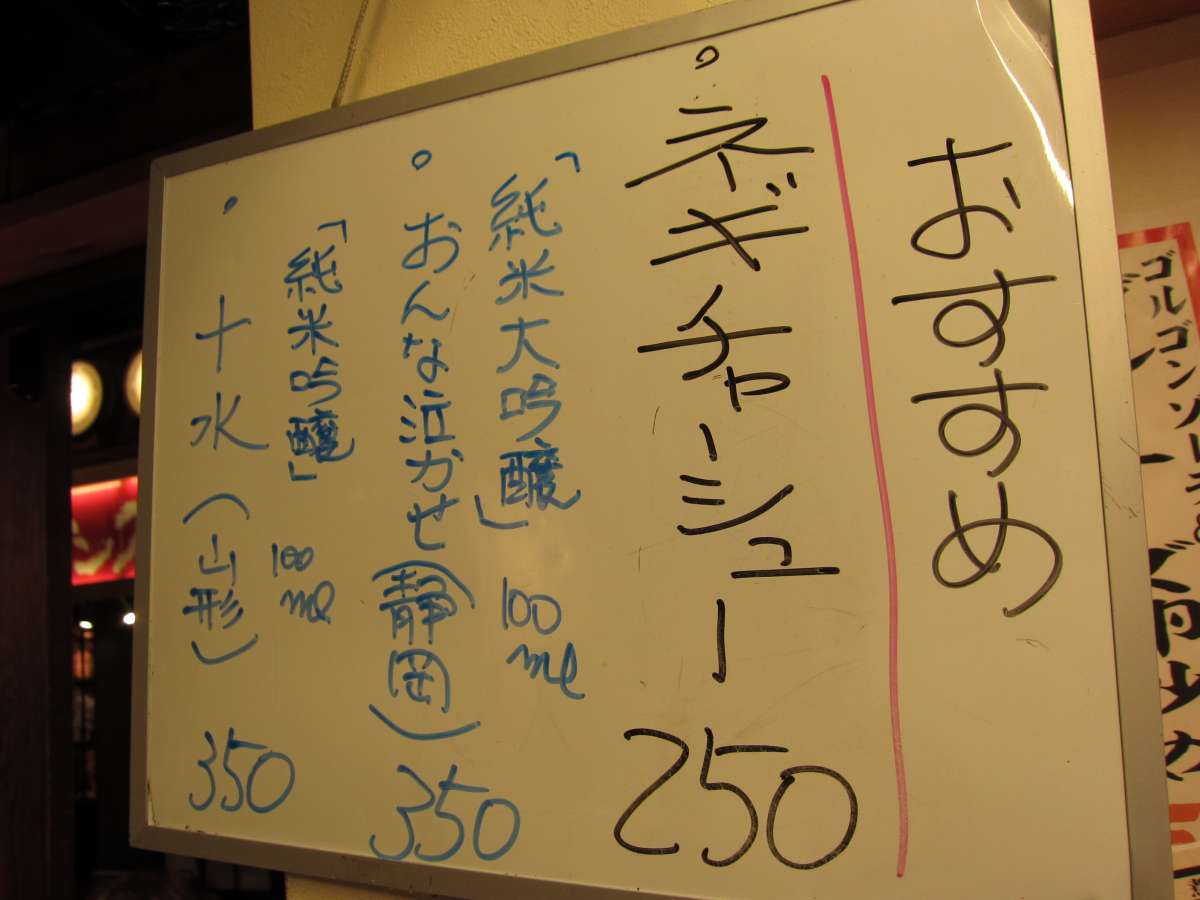 おすすめ
。ネギチャーシュー 250
「純米大吟醸」 100ml
。おんな泣かせ(静岡) 350
「純米吟醸」 100ml
。十水(山形) 350
ゴルゴンゾーラの